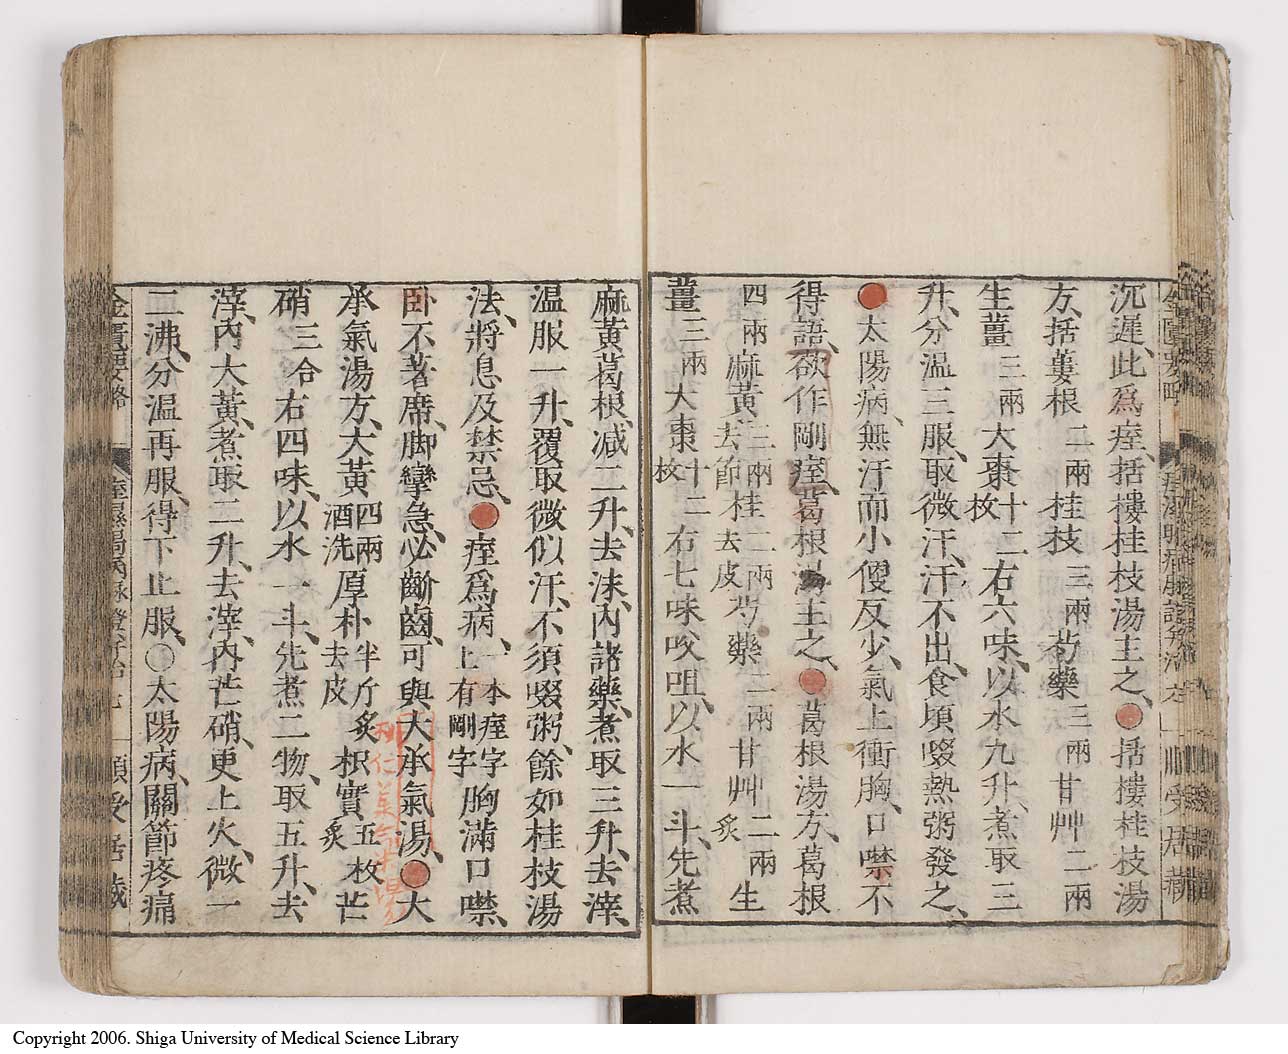 沉遲、此爲痓、括樓桂枝湯主之、●括樓桂枝湯
方、括蔞根二兩桂枝三兩芍藥三兩甘艸二兩
生薑三兩大棗十二枚右六味、以水九升、煮取三
升、分温三服、取微汗、汗不出、食頃啜熱粥發之、
●太陽病、無汗而小便反少、氣上衝胸、口噤不
得語、欲作剛痓、葛根湯主之、●葛根湯方、葛根
四兩麻黃三兩去節桂二兩去皮芍藥二兩甘艸二兩炙生
薑三兩大棗十二枚右七味㕮咀、以水一斗、先煮
麻黃葛根、減二升、去沫、內諸藥、煮取三升、去滓、
温服一升、覆取微似汗、不須啜粥、餘如桂枝湯
法、將息及禁忌、●痓爲病、一本痓字上有剛字胸滿口噤、
卧不著席、脚攣急、必齘齒、可與大承氣湯、●大
承氣湯方、大黃四兩酒洗厚朴半斤炙去皮枳實五枚炙芒
硝三合右四味、以水一斗、先煮二物、取五升、去
滓、內大黃、煮取二升、去滓、內芒硝、更上火、微一
二沸、分温再服、得下止服、○太陽病、關節疼痛
順受居藏
Copyright 2006. Shiga University of Medical Science Library